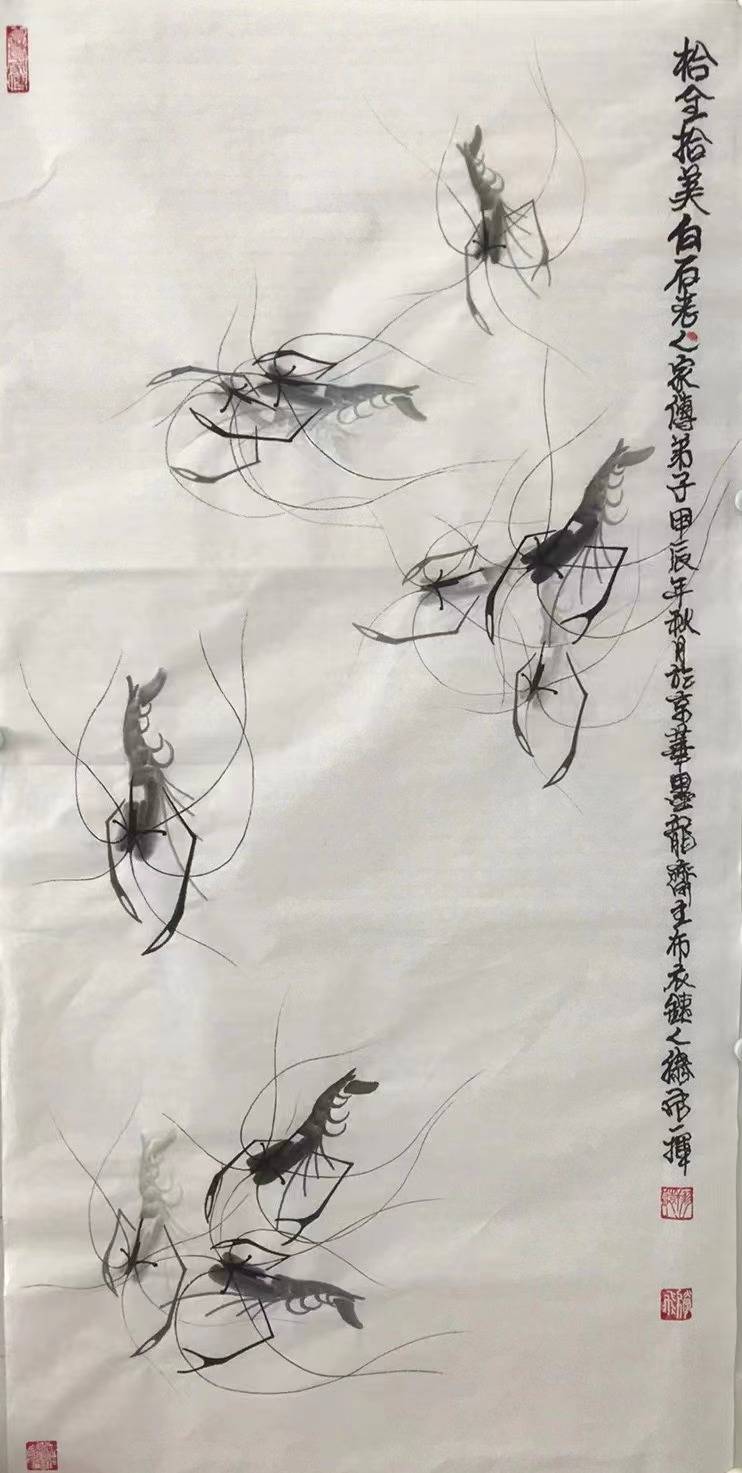 拾全拾美白石老人家傳弟子甲辰年秋月於京華墨龍齋主布衣鐵人滕飛一揮